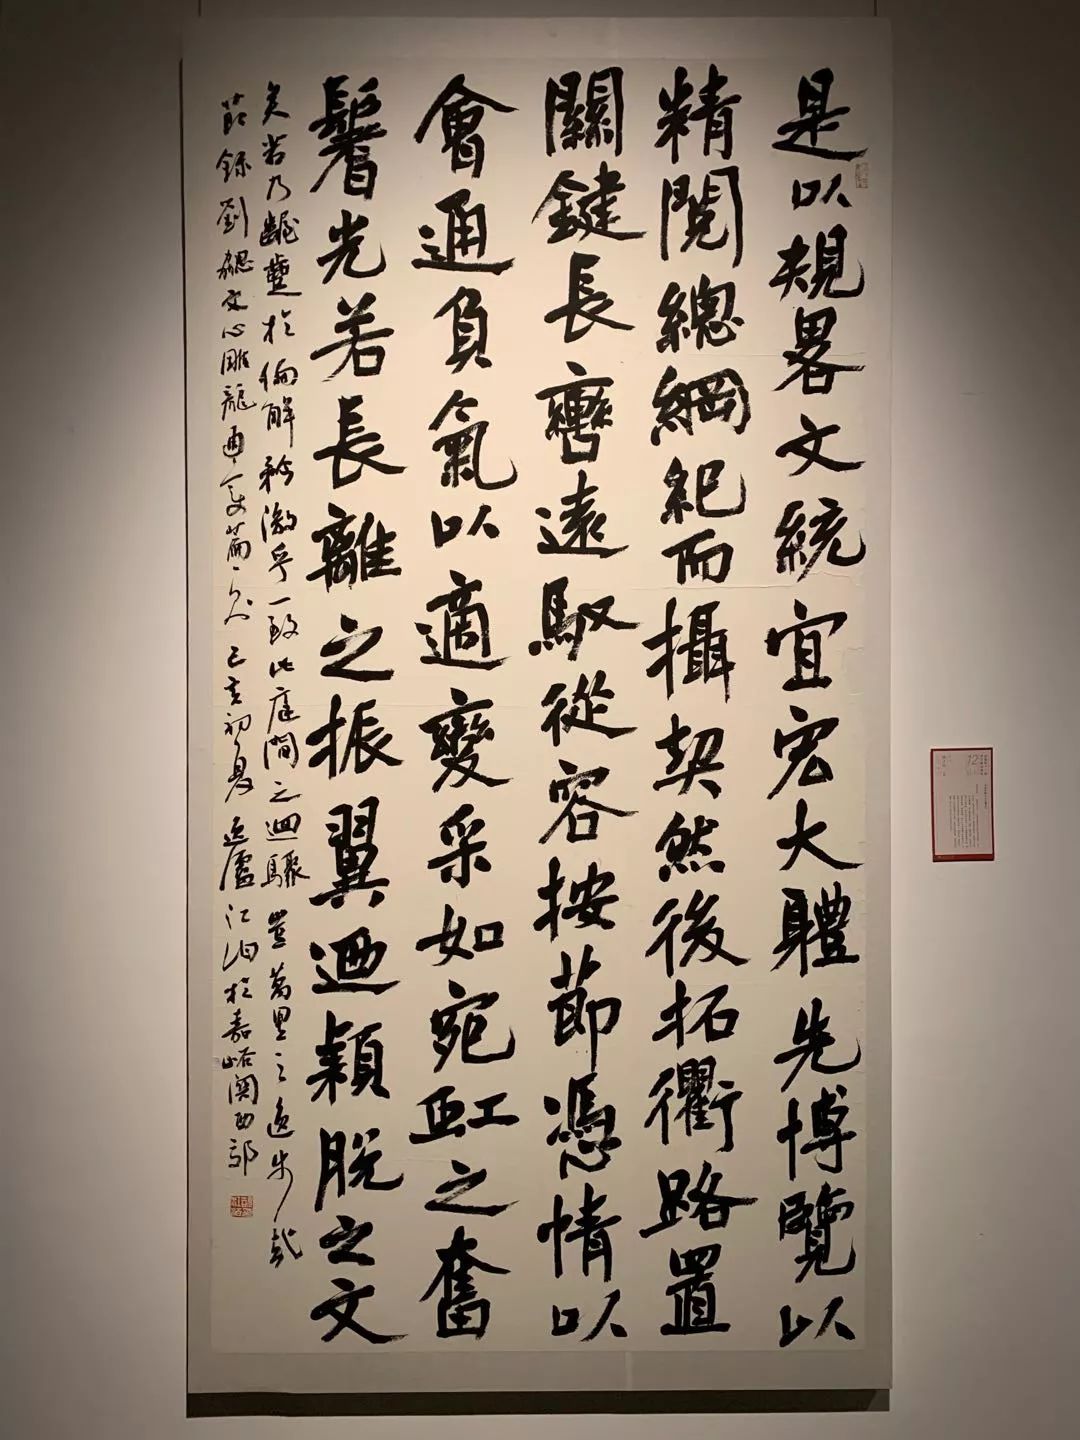 是以規畧文統宜宏大體先博覽以
精閱總綱紀而攝契然後拓衢路置
關鍵長轡遠馭從容按節憑情以
會通負氣以適變采如宛虹之奮
鬐光若長離之振翼迺穎脫之文
矣若乃齷齪於偏解矜激乎一致此庭間之迴驟豈萬里之逸步哉
節錄劉勰文心雕龍通變篇一則己亥初夏廬江泊於嘉峪関西
12